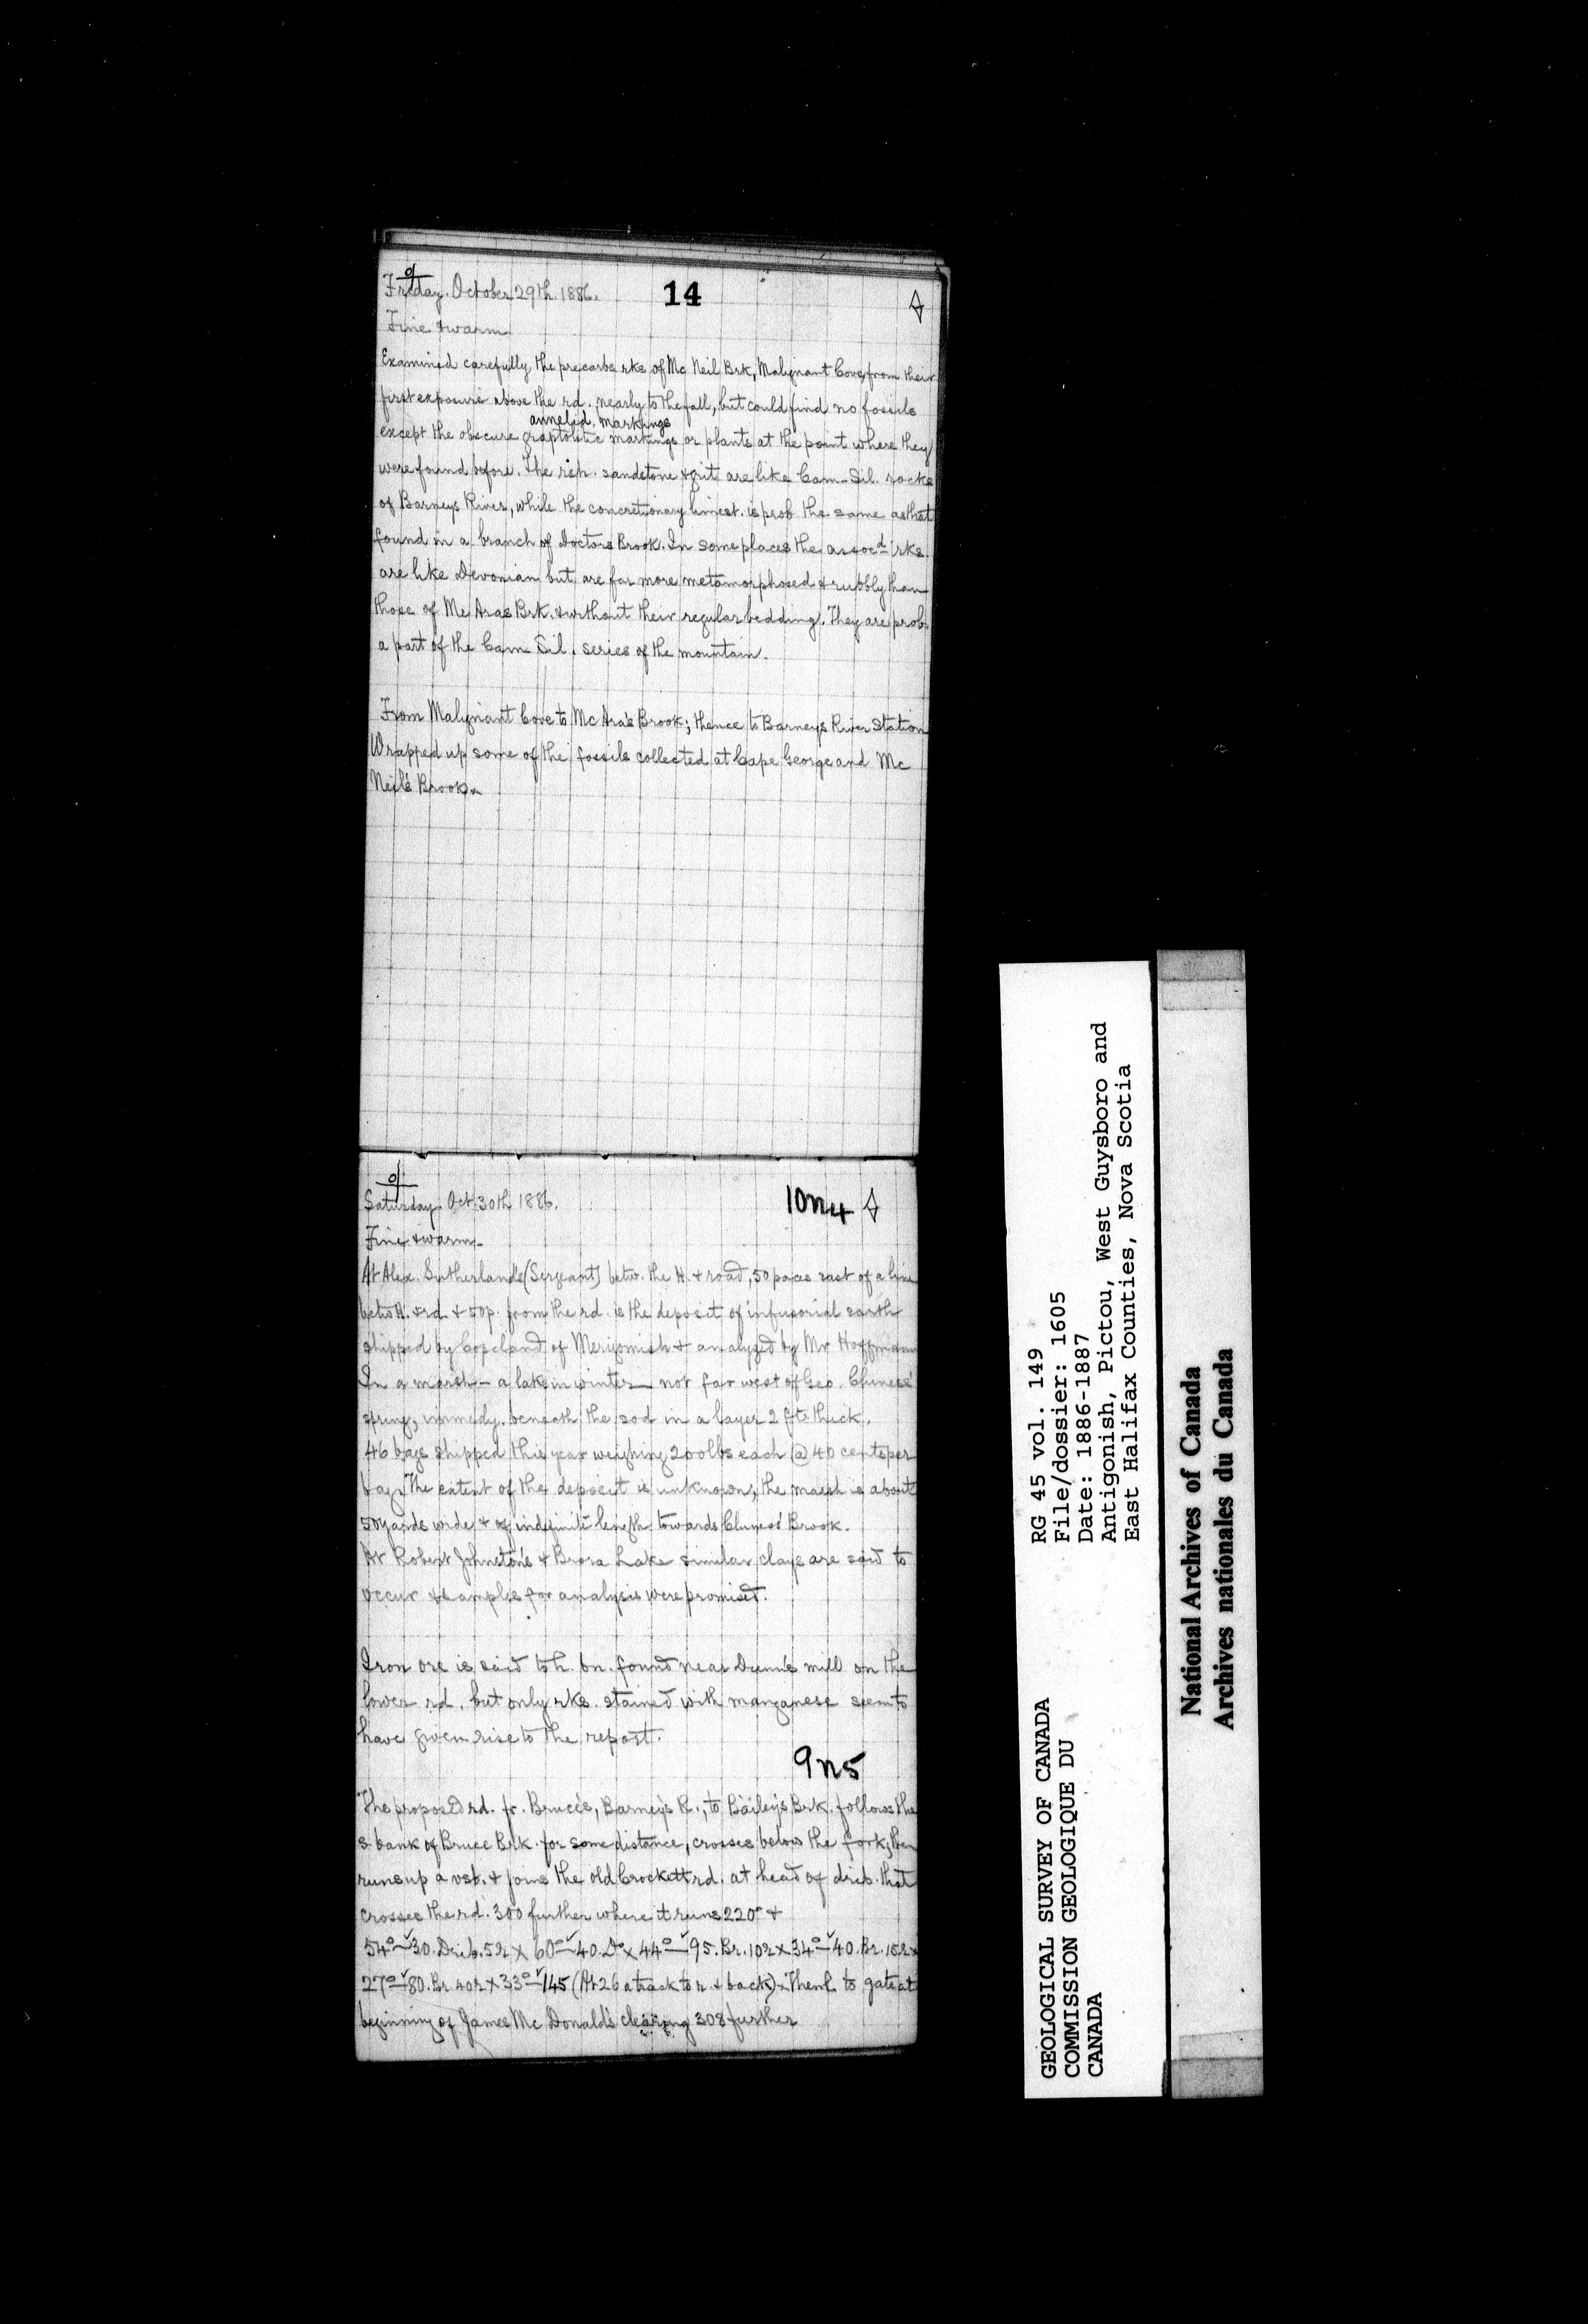 Friday. October 29th. 1886.
14
Fine & warm
Examined carefully, the precarbs rks of Mc Neil Brk, Malignant Cove, from their
first exposure above the rd. nearly to the fall, but could find no fossils
annelid markings
except the obscure graptolitic markings or plants at the point where they
were found before. The rish. sandstone & grit are like Cam-Sil. rocks
of Barneys River, while the concretionary limest. is prob the same as that
found in a branch of Doctors Brook. In some places the assocd rks.
are like Devonian but are far more metamorphosed & rubbly than
those of Mc Aras Brk. & without their regular bedding. They are prob.
a part of the Cam Sil. series of the mountain.
From Malignant Cove to Mc Ara's Brook; thence to Barneys River Station
Wrapped up some of the fossils collected at Cape George and Mc
Neil's Brook.
Saturday. Oct. 30th 1886.
10n4
Fine & warm
At Alex. Sutherlands (Sergeant) betw. the H. & road, 50 paces east of a line
betw H. & rd. & 50p. from the rd. is the deposit of infusorial earth
shipped by Copeland of Merigomish & analyzed by Mr Hoffmann
In a marsh - a lake in winter - not far west of Geo. Chunes'
spring, immedy. beneath the sod in a layer 2 ft. thick.
46 bags shipped this year weighing 200lbs each @ 40 cents per
bag. The extent of the deposit is unknown, the marsh is about
50 yards wide & of indefinite length towards Chunes' Brook.
At Robert Johnston's & Brora Lake similar clays are said to
occur & samples for analysis were promised.
Iron ore is said to h. bn. found near Dunn's mill on the
lower rd. but only rks. stained with manganese seem to
have given rise to the report.
9n5
The proposed rd. fr. Bruce's, Barney's R., to Bailey's Brk. follows the
s. bank of Bruce Brk. for some distance, crosses below the fork, then
runs up a vsb. & joins the old Crockett rd. at head of drib. that
crosses the rd. 300 further where it runs 220° &
54° 30. Drib. 52 x 60° 40. Do x 44° 95. Br. 102 x 34° 40. Br. 152 x
27° 80. Br. 402 x 33° 145 (At 26 a track to r. & back) x Thenl. to gate at
beginning of James Mc Donald's clearing 308 further
GEOLOGICAL SURVEY OF CANADA
COMMISSION GEOLOGIQUE DU
CANADA
RG 45 vol. 149
File/dossier: 1605
Date: 1886-1887
Antigonish, Pictou, West Guysboro and
East Halifax Counties, Nova Scotia
National Archives of Canada
Archives nationales du Canada